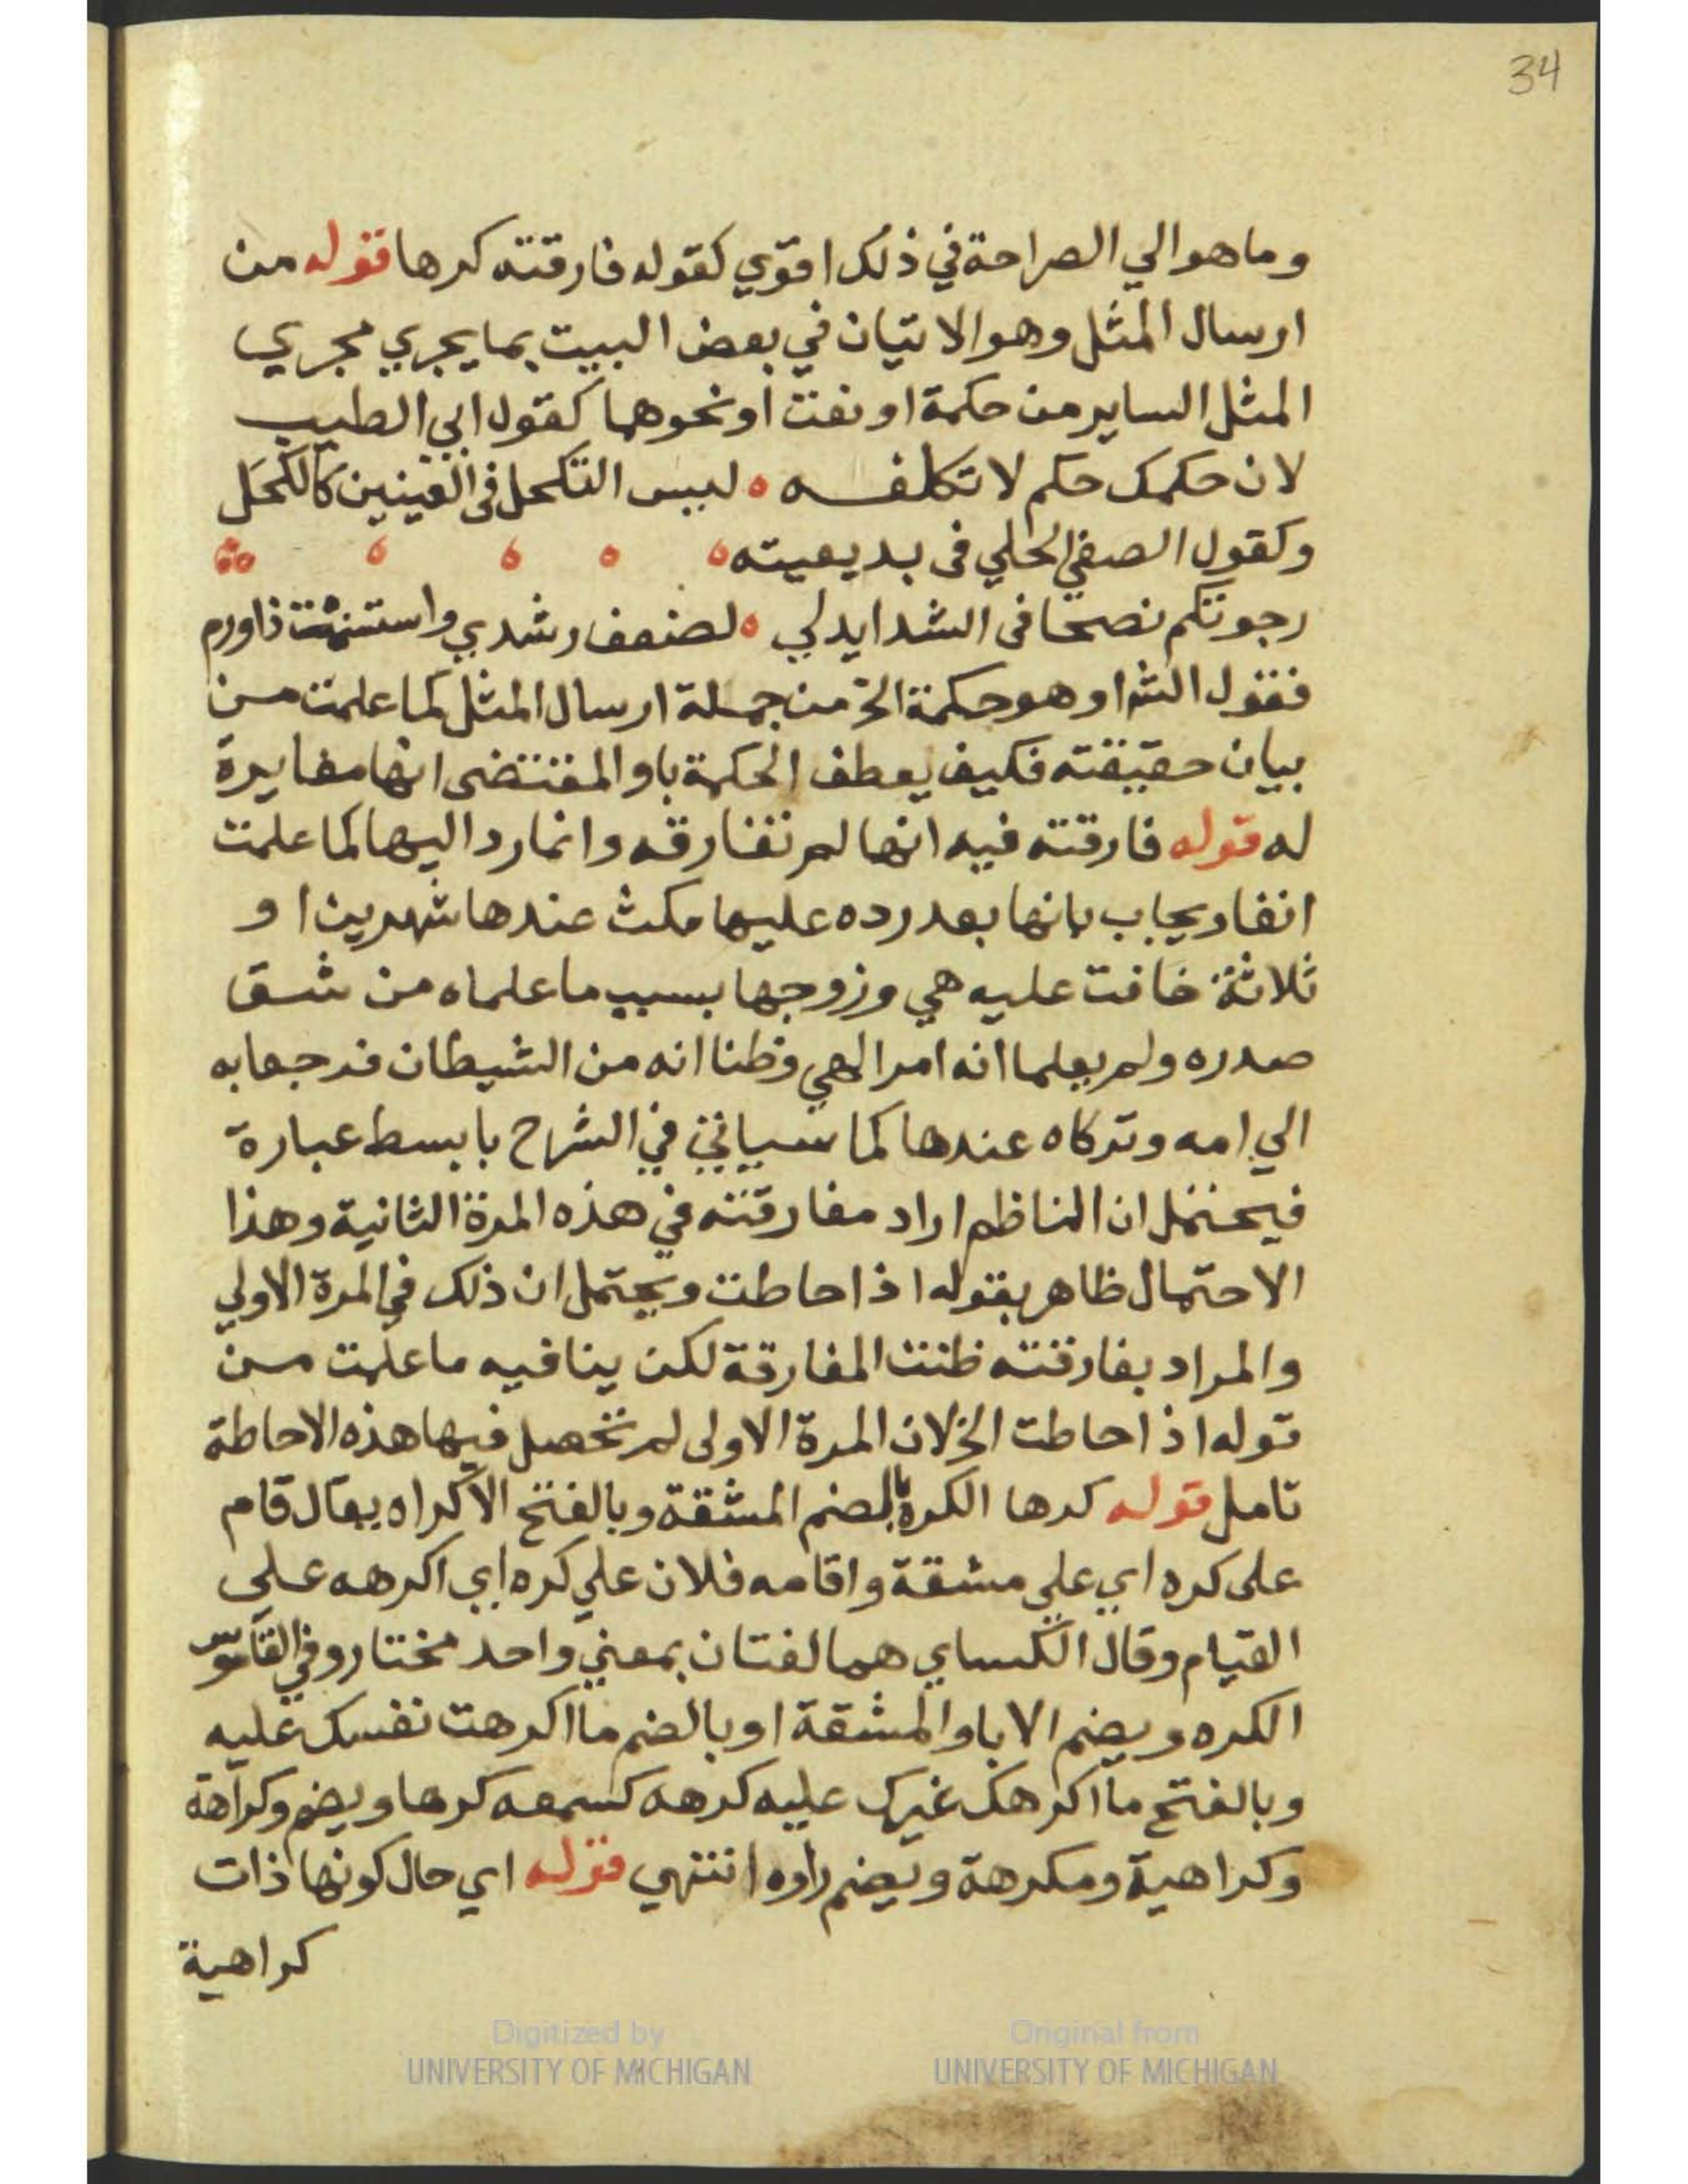 34
وما هو الي الصراحة في ذلك اقوي كقوله فارقته كرها قوله من
ارسال المثل وهو الاتيان في بعض البيت بما يجري مجري
المثل الساير من حكمة او نعت او نحوهما كقول ابي الطيب
لان حكمك حكم لا تكلفه ليس التكحل في العينين كالكحل
وكقول الصفي الحلي في بديعيته
رجوتكم نصحا في الشدايد لي لضعف رشدي واستسمنت ذا ورم
فقول الش او هو حكمة الخ من جملة ارسال المثل كما علمت من
بيان حقيقته فكيف يعطف الحكمة باو المقتضي انها مغايرة
له قوله فارقته فيه انها لم تفارقه وانما رد اليها كما علمت
انفا ويجاب بانها بعد رده عليها مكث عندها شهرين او
ثلاثة خافت عليه هي وزوجها بسبب ما علماه من شق
صدره ولم يعلما انه امر الهي وظنا انه من الشيطان فرجعا به
الي امه وتركاه عندها كما سياتي في الشرح بابسط عبارة
فيحتمل ان الناظم اراد مفارقته في هذه المرة الثانية وهذا
الاحتمال ظاهر بقوله اذ احاطت ويحتمل ان ذلك في المرة الاولي
والمراد بفارقته ظنت المفارقة لكن ينافيه ما علمت من
قوله اذ احاطت الخ لان المرة الاولى لم تحصل فيها هذه الاحاطة
تامل قوله كرها الكره بالضم المشقة وبالفتح الاكراه يقال قام
على كره اي علي مشقة واقامه فلان علي كره اي اكرهه علي
القيام وقال الكساي هما لغتان بمعني واحد مختار وفي القاموس
الكره ويضم الابا والمشقة او بالضم ما اكرهت نفسك عليه
وبالفتح ما اكرهك غيرك عليه كرهه كسمعه كرها ويضم وكراهة
وكراهية ومكرهة وتضم راوه انتهي قوله اي حال كونها ذات
كراهية
Digitized by
UNIVERSITY OF MICHIGAN
Original from
UNIVERSITY OF MICHIGAN